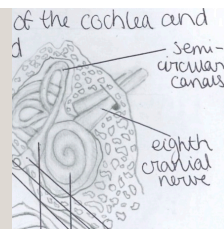 of the cochlea and
d
semi-
circular
canals
eighth
cranial
nerve